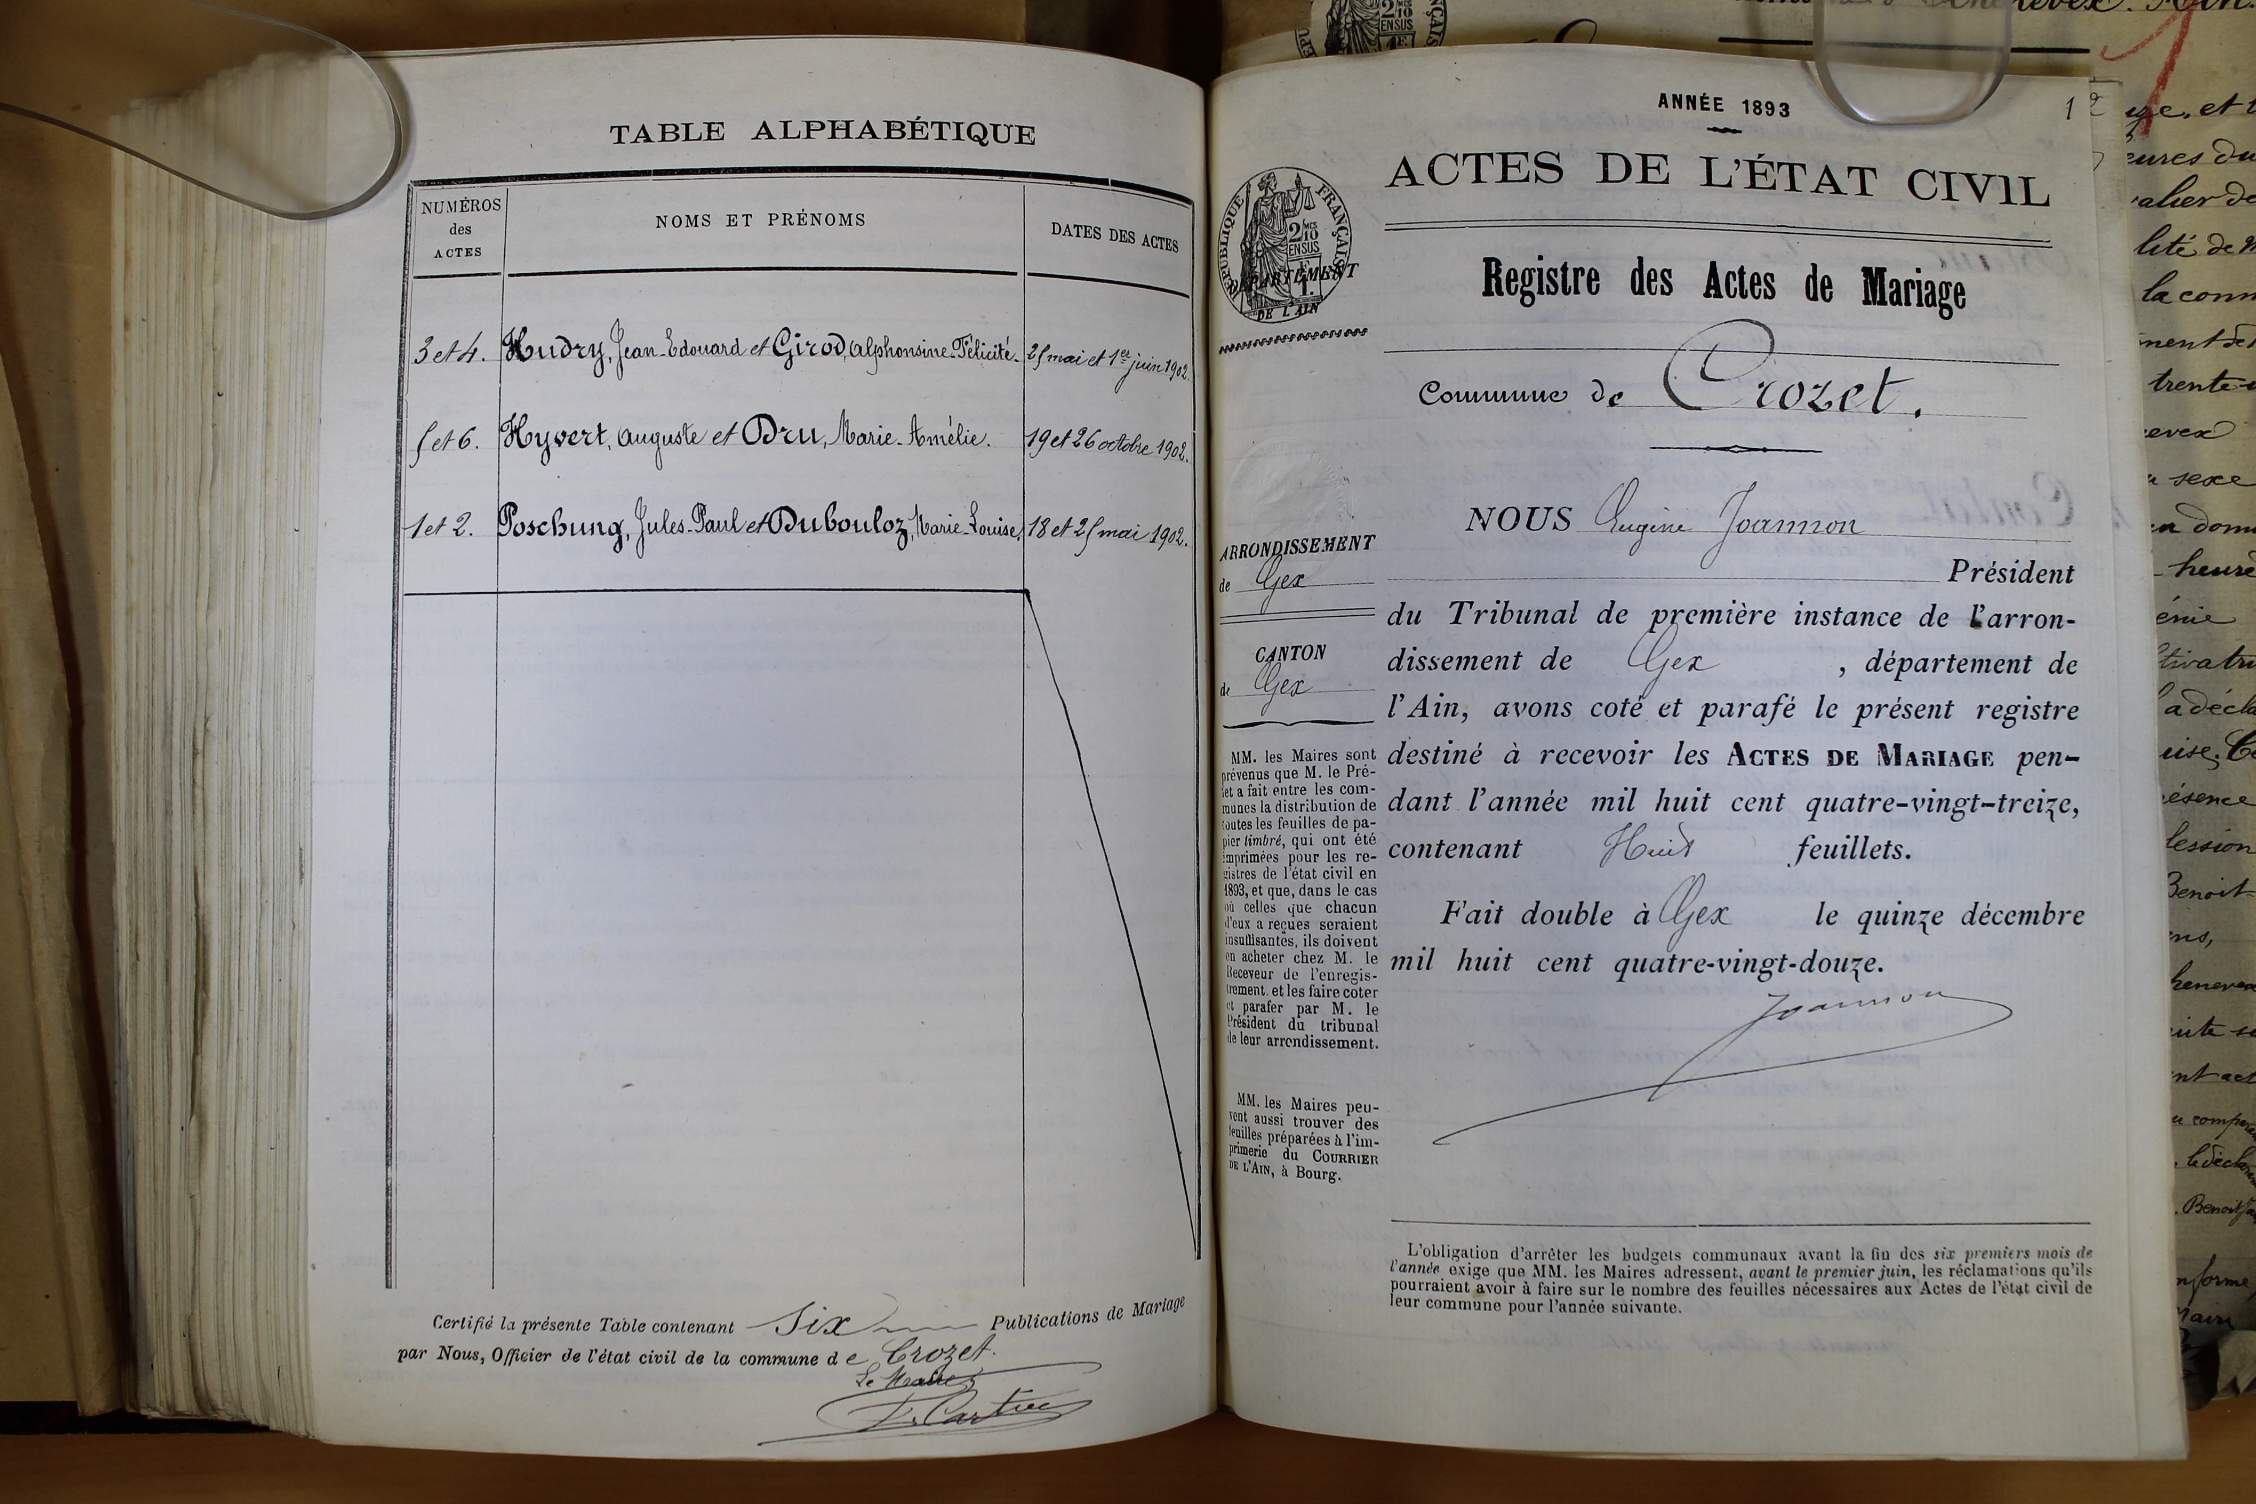 TABLE ALPHABÉTIQUE
NUMÉROS
des
ACTES
NOMS ET PRÉNOMS
DATES DES ACTES
3 et 4. Hudry, Jean-Edouard et Girod, Alphonsine-Félicité. 25 mai et 1er juin 1902.
5 et 6. Hyvert, Auguste et Dru, Marie-Amélie. 19 et 26 octobre 1902.
1 et 2. Poschung, Jules-Paul et Dubouloz, Marie-Louise, 18 et 25 mai 1902.
Certifié la présente Table contenant Six Publications de Mariage
par Nous, Officier de l'état civil de la commune de Crozet.
Le Maire
ANNÉE 1893
1
ACTES DE L'ÉTAT CIVIL
RÉPUBLIQUE FRANÇAISE
2/10
EN SUS
DÉPARTEMENT
DE L'AIN
Registre des Actes de Mariage
Commune de Crozet.
ARRONDISSEMENT
de Gex
CANTON
de Gex
MM. les Maires sont
prévenus que M. le Pré-
fet a fait entre les com-
munes la distribution de
toutes les feuilles de pa-
pier timbré, qui ont été
imprimées pour les re-
gistres de l'état civil en
1893, et que, dans le cas
où celles que chacun
d'eux a reçues seraient
insuffisantes, ils doivent
en acheter chez M. le
Receveur de l'enregis-
trement, et les faire coter
et parafer par M. le
Président du tribunal
de leur arrondissement.
MM. les Maires peu-
vent aussi trouver des
feuilles préparées à l'im-
primerie du COURRIER
DE L'AIN, à Bourg.
NOUS Eugène Joannon
Président
du Tribunal de première instance de l'arron-
dissement de Gex , département de
l'Ain, avons coté et parafé le présent registre
destiné à recevoir les ACTES DE MARIAGE pen-
dant l'année mil huit cent quatre-vingt-treize,
contenant Huit feuillets.
Fait double à Gex le quinze décembre
mil huit cent quatre-vingt-douze.
Joannon
L'obligation d'arrêter les budgets communaux avant la fin des six premiers mois de
l'année exige que MM. les Maires adressent, avant le premier juin, les réclamations qu'ils
pourraient avoir à faire sur le nombre des feuilles nécessaires aux Actes de l'état civil de
leur commune pour l'année suivante.